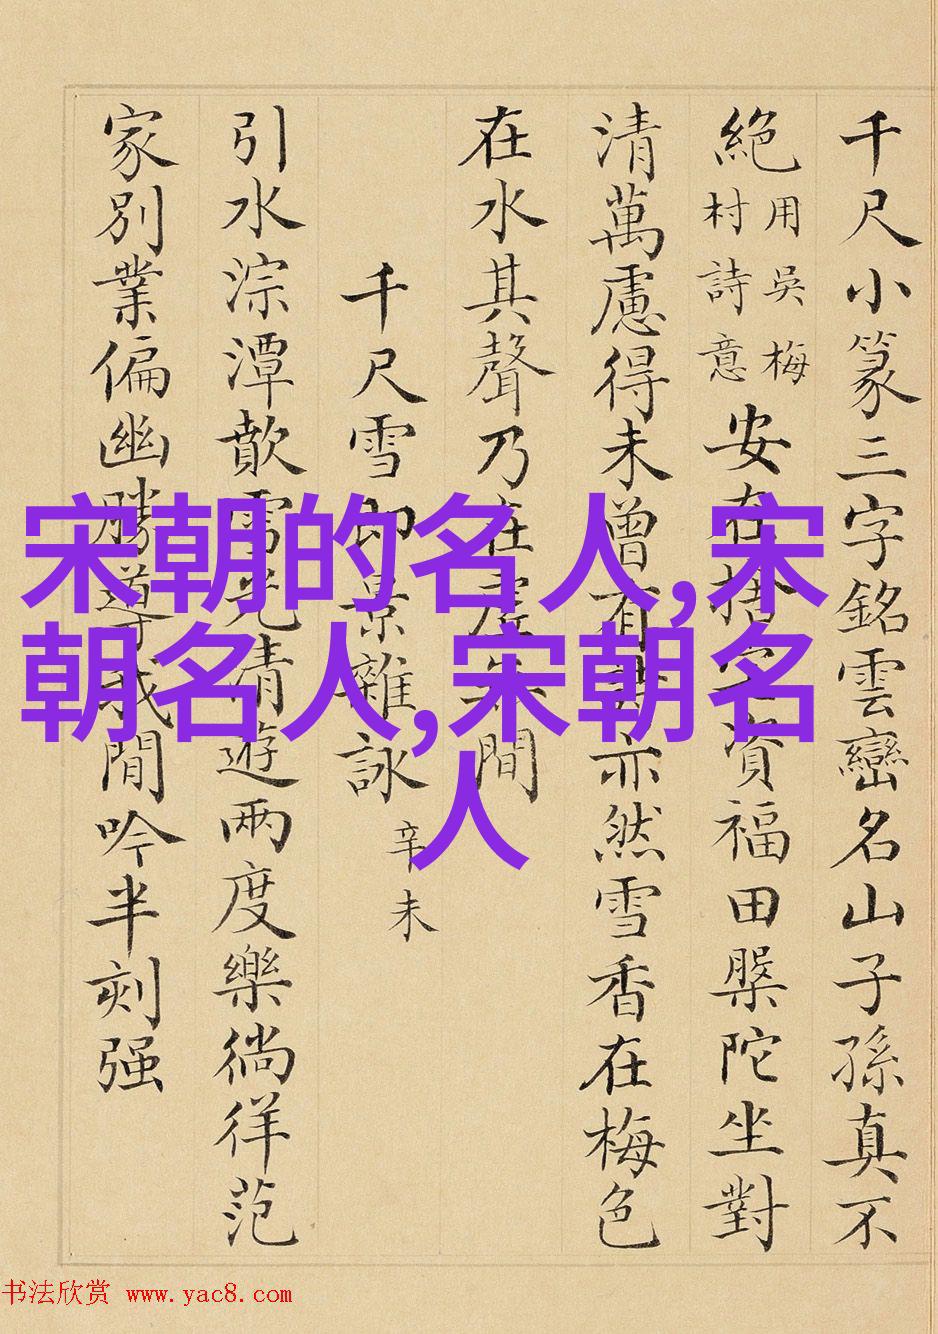 千尺小篆三字銘雲巒名山子孫真不
絕用吳梅村詩意安在捨宅資福田槃陀坐對
清萬慮得未曾有亦然雪香在梅色
在水其聲乃在虛間
千尺雪即景雜詠辛未
引水淙潭歕雪光清遊兩度樂徜徉范
家別業偏幽勝導我閒吟半刻强
宋朝的名人,宋
朝名人,宋朝名
人
书法欣赏 www.yac8.com